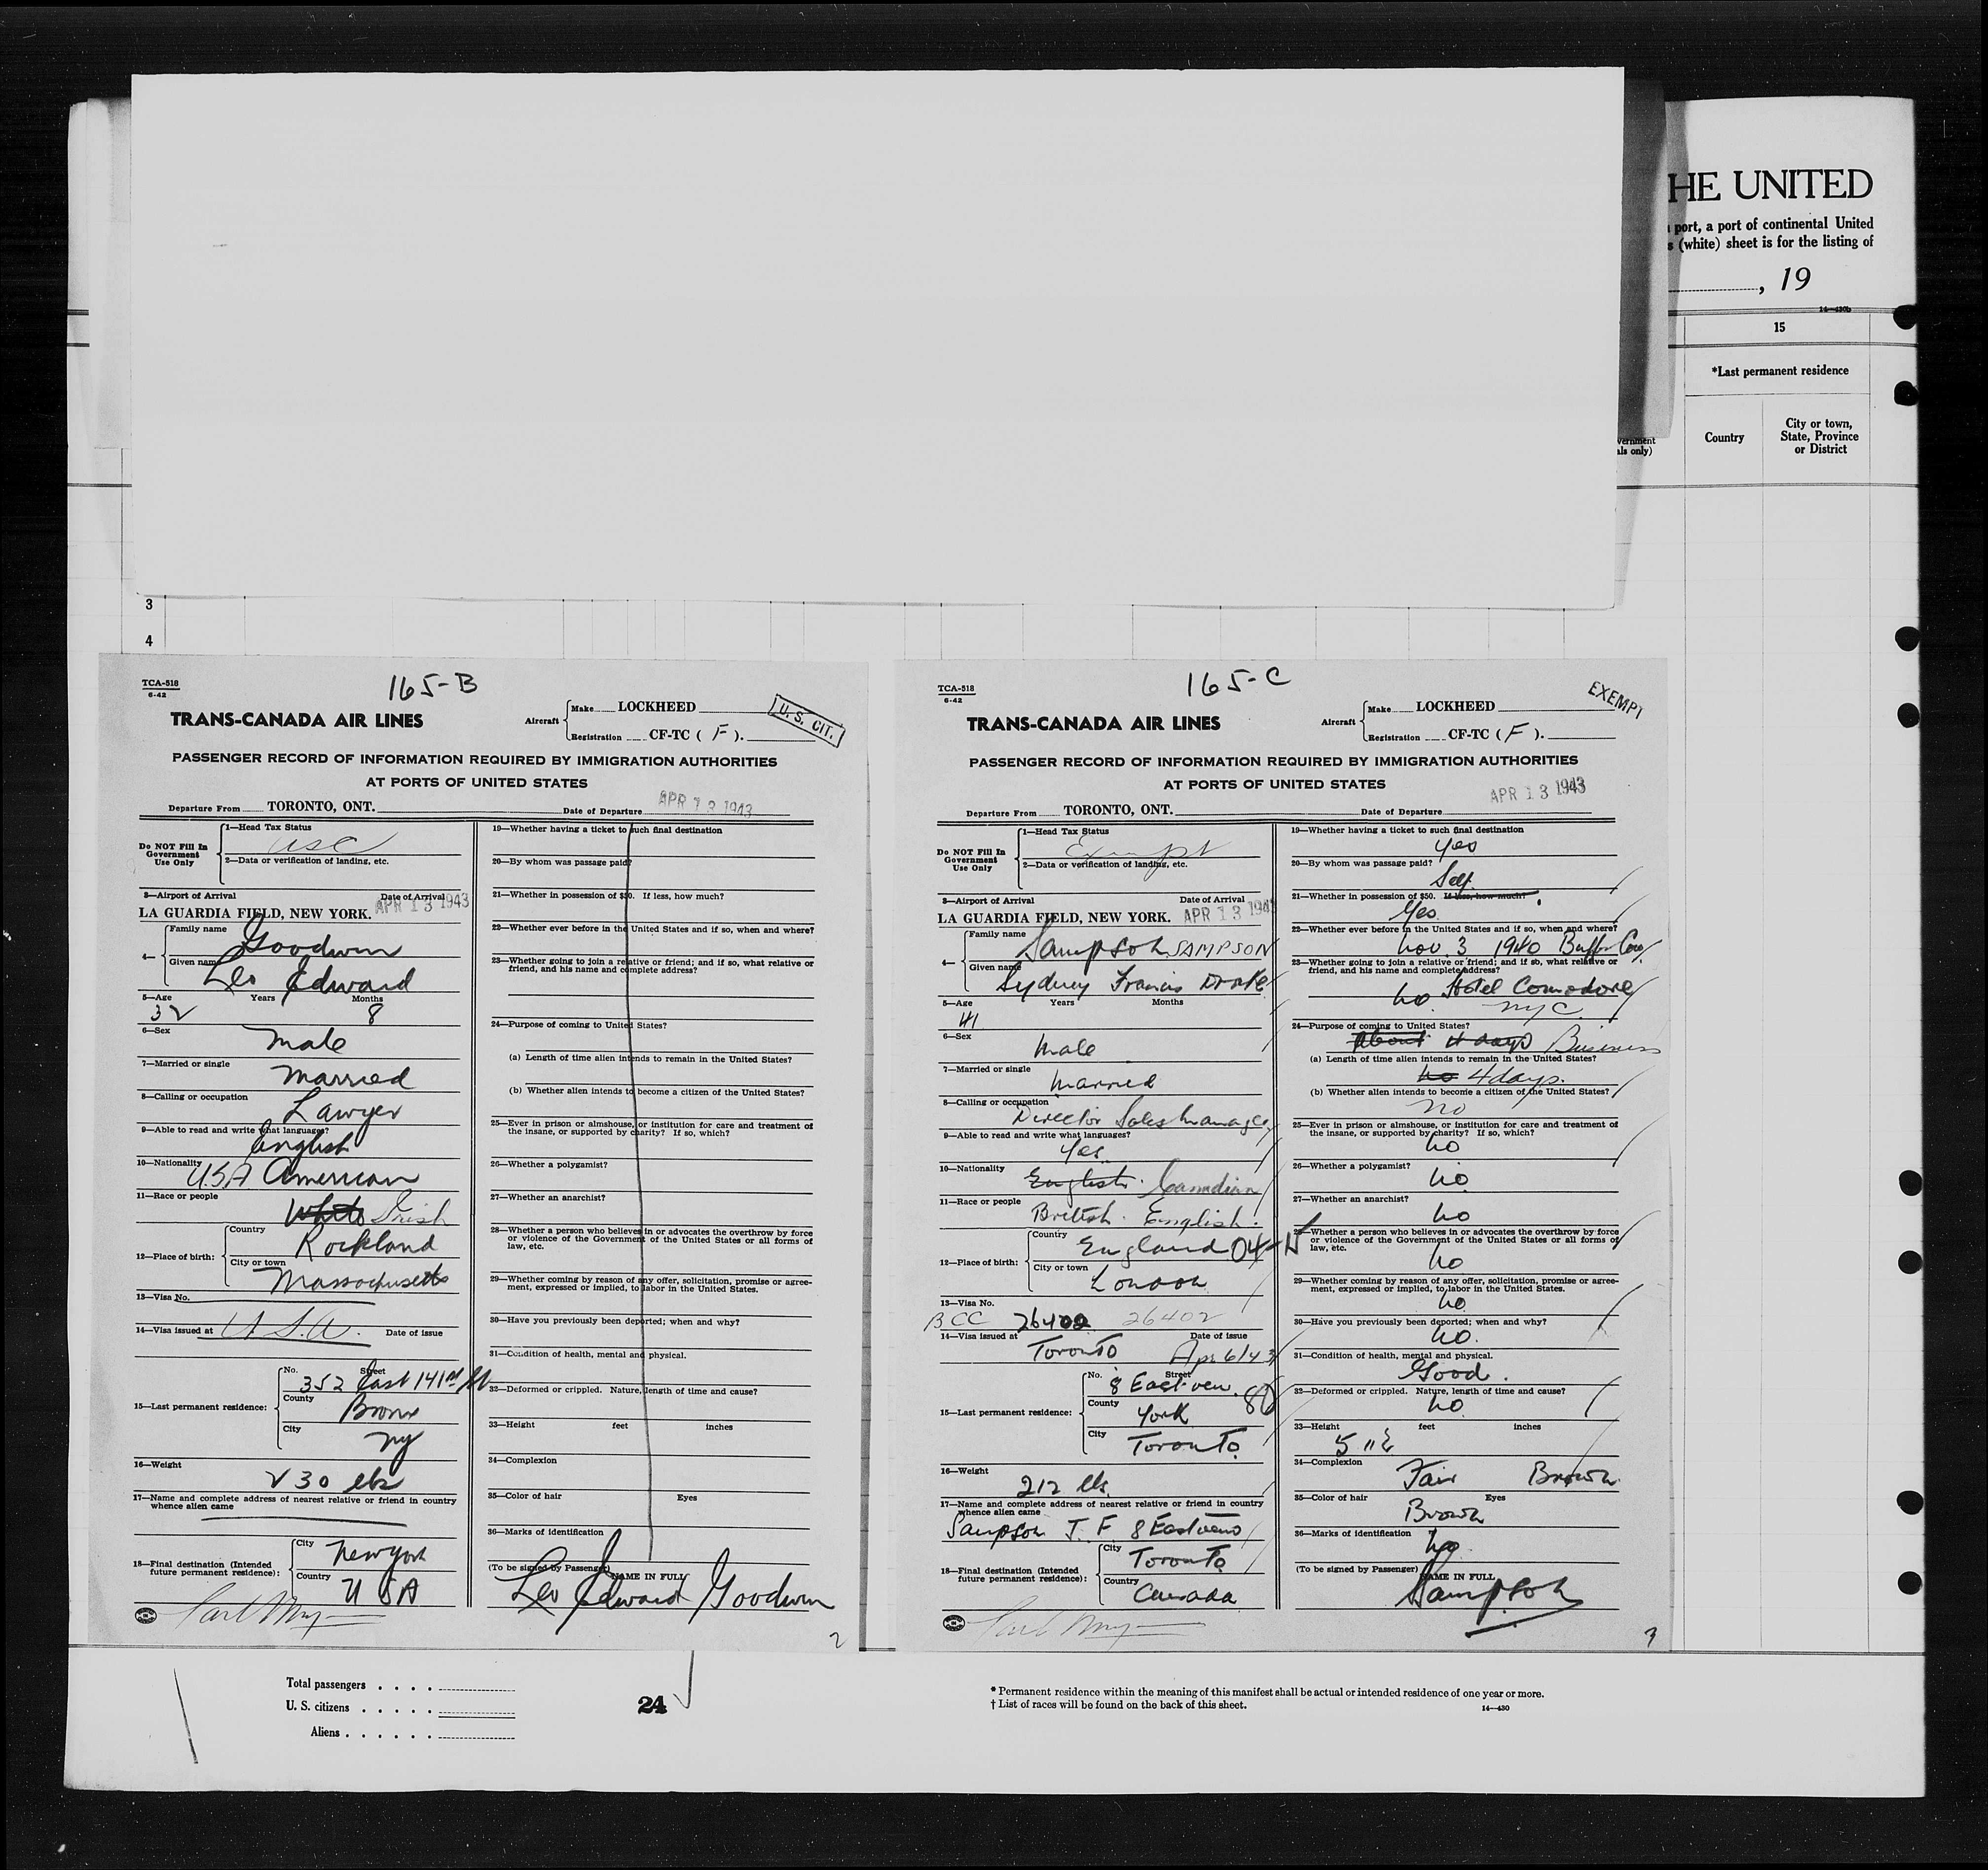 HE UNITED
port, a port of continental United
(white) sheet is for the listing of
, 19
14—430b
15
*Last permanent residence
vernment
als only)
Country
City or town,
State, Province
or District
3
4
TCA-518
6-42
165-B
TRANS-CANADA AIR LINES
Aircraft
Make LOCKHEED
Registration CF-TC ( F ).
U. S. CIT.
PASSENGER RECORD OF INFORMATION REQUIRED BY IMMIGRATION AUTHORITIES
AT PORTS OF UNITED STATES
Departure From TORONTO, ONT. Date of Departure APR 13 1943
Do NOT Fill In
Government
Use Only
1—Head Tax Status
USC
2—Data or verification of landing, etc.
3—Airport of Arrival Date of Arrival
LA GUARDIA FIELD, NEW YORK. APR 13 1943
4— Family name
Goodwin
Given name
Leo Edward
5—Age Years Months
32 8
6—Sex
Male
7—Married or single
Married
8—Calling or occupation
Lawyer
9—Able to read and write what languages?
English
10—Nationality
USA American
11—Race or people
White Irish
12—Place of birth:
Country
Rockland
City or town
Massachusetts
13—Visa No.
14—Visa issued at U.S.A. Date of issue
15—Last permanent residence:
No. Street
352 East 141st St
County
Bronx
City
NY
16—Weight
230 lbs
17—Name and complete address of nearest relative or friend in country
whence alien came
18—Final destination (Intended
future permanent residence):
City
New York
Country
USA
19—Whether having a ticket to such final destination
20—By whom was passage paid?
21—Whether in possession of $50. If less, how much?
22—Whether ever before in the United States and if so, when and where?
23—Whether going to join a relative or friend; and if so, what relative or
friend, and his name and complete address?
24—Purpose of coming to United States?
(a) Length of time alien intends to remain in the United States?
(b) Whether alien intends to become a citizen of the United States?
25—Ever in prison or almshouse, or institution for care and treatment of
the insane, or supported by charity? If so, which?
26—Whether a polygamist?
27—Whether an anarchist?
28—Whether a person who believes in or advocates the overthrow by force
or violence of the Government of the United States or all forms of
law, etc.
29—Whether coming by reason of any offer, solicitation, promise or agree-
ment, expressed or implied, to labor in the United States.
30—Have you previously been deported; when and why?
31—Condition of health, mental and physical.
32—Deformed or crippled. Nature, length of time and cause?
33—Height feet inches
34—Complexion
35—Color of hair Eyes
36—Marks of identification
(To be signed by Passenger) NAME IN FULL
Leo Edward Goodwin
2
TCA-518
6-42
165-C
TRANS-CANADA AIR LINES
Aircraft
Make LOCKHEED
Registration CF-TC ( F ).
EXEMPT
PASSENGER RECORD OF INFORMATION REQUIRED BY IMMIGRATION AUTHORITIES
AT PORTS OF UNITED STATES
Departure From TORONTO, ONT. Date of Departure APR 13 1943
Do NOT Fill In
Government
Use Only
1—Head Tax Status
Exempt
2—Data or verification of landing, etc.
3—Airport of Arrival Date of Arrival
LA GUARDIA FIELD, NEW YORK. APR 13 1943
4— Family name
Sampson SAMPSON
Given name
Sydney Francis Drake
5—Age Years Months
41
6—Sex
Male
7—Married or single
Married
8—Calling or occupation
Director Sales Manager
9—Able to read and write what languages?
Yes.
10—Nationality
English. Canadian
11—Race or people
British. English.
12—Place of birth:
Country
England 04-N
City or town
London
13—Visa No.
BCC 26402 26402
14—Visa issued at Date of issue
Toronto Apr 6/43
15—Last permanent residence:
No. Street
8 Eastven. 86
County
York
City
Toronto
16—Weight
212 lbs.
17—Name and complete address of nearest relative or friend in country
whence alien came
Sampson J. F. 8 Eastven
18—Final destination (Intended
future permanent residence):
City
Toronto
Country
Canada
19—Whether having a ticket to such final destination
Yes
20—By whom was passage paid?
Self.
21—Whether in possession of $50. If less, how much?
Yes
22—Whether ever before in the United States and if so, when and where?
Nov. 3 1940 Buffalo
23—Whether going to join a relative or friend; and if so, what relative or
friend, and his name and complete address?
no Hotel Comodore
NYC
24—Purpose of coming to United States?
About 4 days Business
(a) Length of time alien intends to remain in the United States?
no 4 days.
(b) Whether alien intends to become a citizen of the United States?
no
25—Ever in prison or almshouse, or institution for care and treatment of
the insane, or supported by charity? If so, which?
no
26—Whether a polygamist?
no
27—Whether an anarchist?
no
28—Whether a person who believes in or advocates the overthrow by force
or violence of the Government of the United States or all forms of
law, etc.
no
29—Whether coming by reason of any offer, solicitation, promise or agree-
ment, expressed or implied, to labor in the United States.
no
30—Have you previously been deported; when and why?
no.
31—Condition of health, mental and physical.
Good.
32—Deformed or crippled. Nature, length of time and cause?
no
33—Height feet inches
5 11½
34—Complexion
Fair Brown
35—Color of hair Eyes
Brown
36—Marks of identification
no
(To be signed by Passenger) NAME IN FULL
Sampson
3
Total passengers . . . .
U. S. citizens . . . . .
Aliens . . . . . .
24
* Permanent residence within the meaning of this manifest shall be actual or intended residence of one year or more.
† List of races will be found on the back of this sheet.
14—430